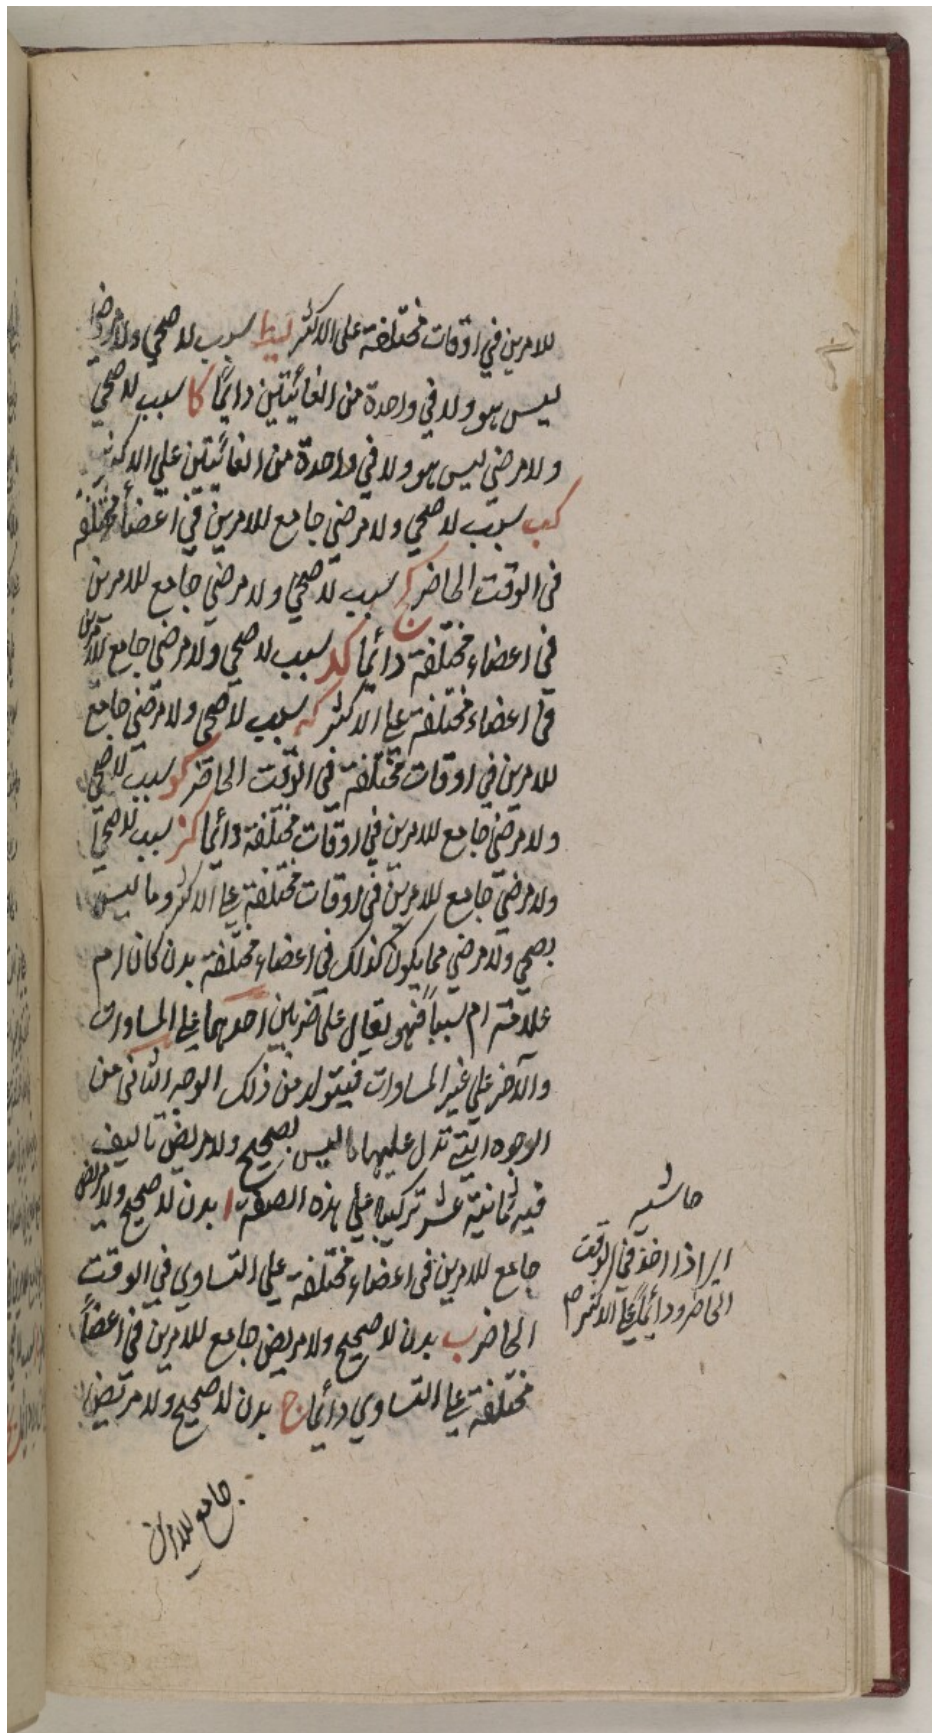 للامرين في اوقات مختلفة على الاكثر يط سبب لا صحي ولا مرضي
ليس هو ولا في واحدة من الغائيتين دائما كا سبب لا صحي
ولا مرضي ليس هو ولا في واحدة من الغائيتين علي الاكثر
كب سبب لا صحي ولا مرضي جامع للامرين في اعضاء مختلفة
في الوقت الحاضر كج سبب لا صحي ولا مرضي جامع للامرين
في اعضاء مختلفة دائما كد سبب لا صحي ولا مرضي جامع للامرين
في اعضاء مختلفة علي الاكثر كه سبب لا صحي ولا مرضي جامع
للامرين في اوقات مختلفة في الوقت الحاضر كو سبب لا صحي
ولا مرضي جامع للامرين في اوقات مختلفة دائما كز سبب لا صحي
ولا مرضي جامع للامرين في اوقات مختلفة علي الاكثر وما ليس
بصحي ولا مرضي مما يكون كذلك في اعضاء مختلفة بدن كان ام
علامة ام سببا فهو يقال على ضربين احدهما علي المساوات
والآخر علي غير المساوات فيتولد من ذلك الوجه الثاني من
الوجوه التي تدل عليها ما ليس بصحيح ولا مريض تاليف
فيه ثمانية عشر تركيبا علي هذه الصفة ا بدن لا صحيح ولا مريض
جامع للامرين في اعضاء مختلفة علي التساوي في الوقت
الحاضر ب بدن لا صحيح ولا مريض جامع للامرين في اعضاء
مختلفة علي التساوي دائما ج بدن لا صحيح ولا مريض
جامع للامرين
حاشيه
اذا اخذ في الوقت
الحاضر ودائما وعلي الاكثر